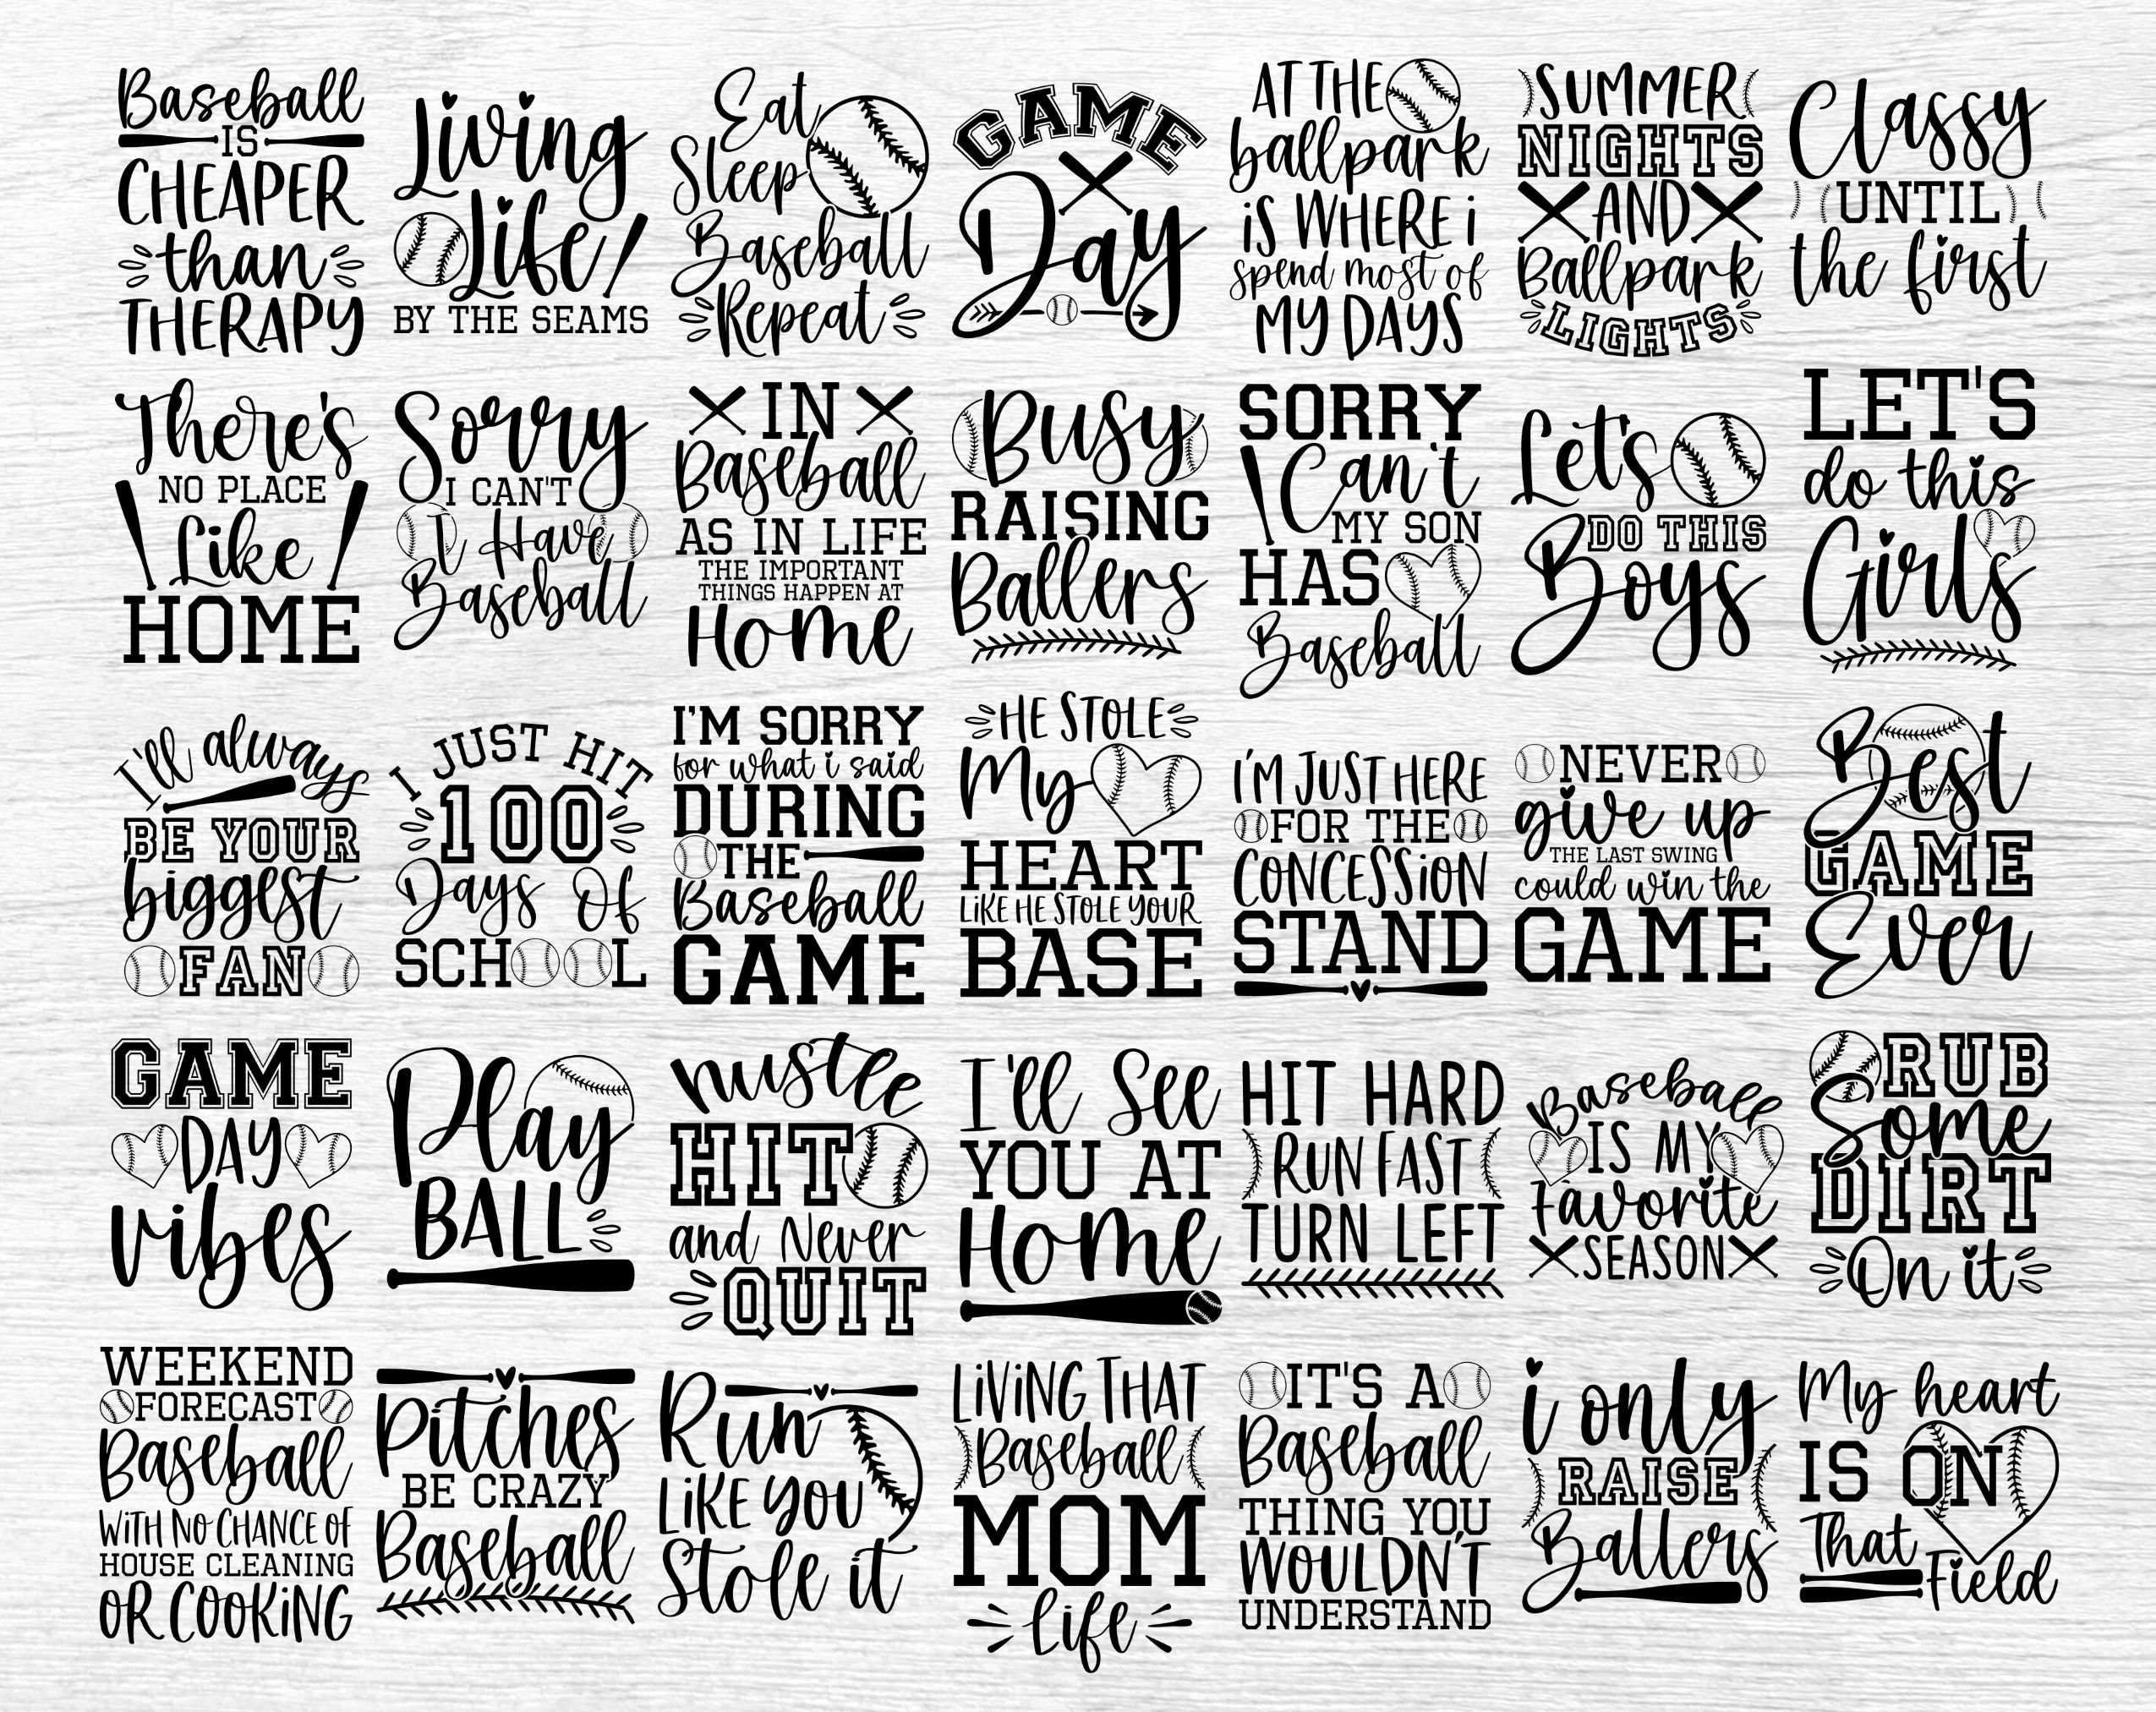 Baseball
IS
CHEAPER
than
THERAPY
Living
Life
BY THE SEAMS
Eat
Sleep
Baseball
Repeat
GAME
Day
AT THE
ballpark
iS WHERE i
spend most of
MY DAYS
SUMMER
NIGHTS
AND
Ballpark
LIGHTS
Classy
UNTIL
the first
There's
NO PLACE
Like
HOME
Sorry
I CAN'T
I Have
Baseball
IN
Baseball
AS IN LIFE
THE IMPORTANT
THINGS HAPPEN AT
Home
Busy
RAISING
Ballers
SORRY
Can't
MY SON
HAS
Baseball
Let's
DO THIS
Boys
LET'S
do this
Girls
I'll always
BE YOUR
biggest
FAN
I JUST HIT
100
Days Of
SCHOOL
I'M SORRY
for what i said
DURING
THE
Baseball
GAME
HE STOLE
My
HEART
LiKE HE STOLE YOUR
BASE
I'M JUST HERE
FOR THE
CONCESSiON
STAND
NEVER
give up
THE LAST SWING
could win the
GAME
Best
GAME
Ever
GAME
DAY
vibes
Play
BALL
Hustle
HIT
and Never
QUIT
I'll See
YOU AT
Home
HIT HARD
RUN FAST
TURN LEFT
Baseball
IS MY
Favorite
SEASON
RUB
Some
DIRT
On it
WEEKEND
FORECAST
Baseball
WiTH NO CHANCE OF
HOUSE CLEANING
OR COOKiNG
Pitches
BE CRAZY
Baseball
Run
LiKE YOU
Stole it
LiViNG THAT
Baseball
MOM
Life
IT'S A
Baseball
THING YOU
WOULDN'T
UNDERSTAND
i only
RAISE
Ballers
My heart
IS ON
That
Field